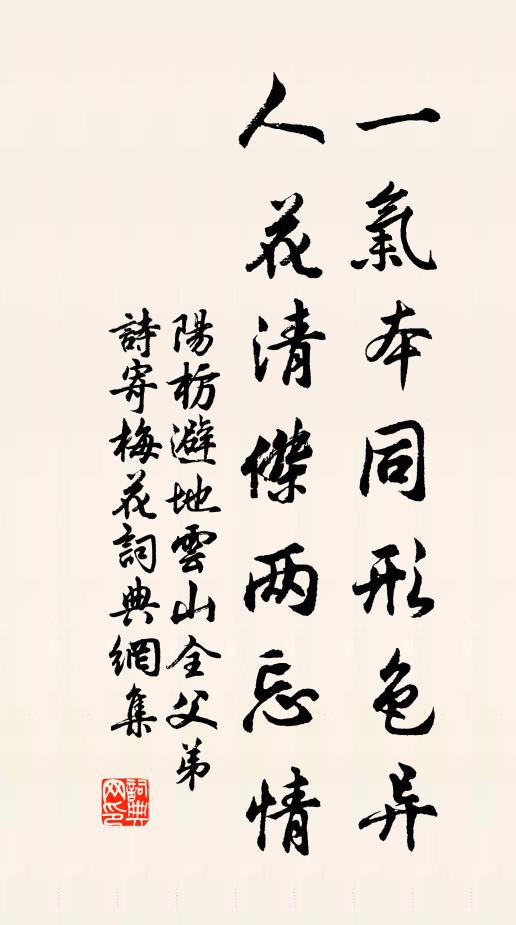 一氣本同形色异
人花清傑两忘情
陽枋避地雲山全父弟
詩寄梅花詞典網集
詞典网印